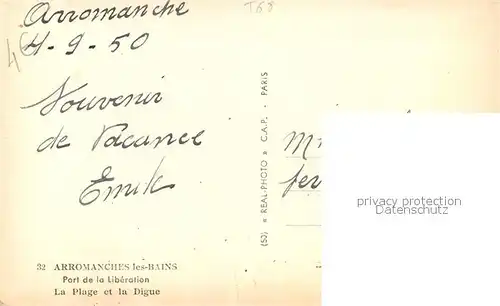 Arromanche
T68
4-9-50
Souvenir
de Vacance
Emile
32 ARROMANCHES les-BAINS
Port de la Libération
La Plage et la Digue
(53) « REAL-PHOTO » C.A.P. - PARIS
privacy protection